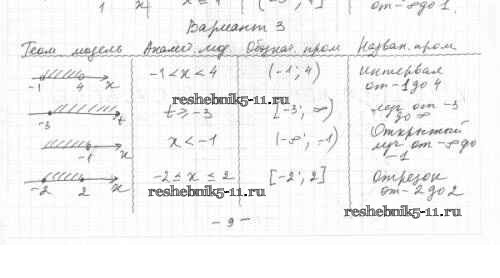 1 x x ≤ 4 (-∞; 4] от -∞ до 1.
Вариант 3
Геом модель Аналит. мод. Обознач. пром Назван. пром
-1 4 x -1 < x < 4 (-1; 4) интервал
от -1 до 4
reshebnik5-11.ru
-3 t t ≥ -3 [-3; ∞) луч от -3
до ∞
-1 x x < -1 (-∞; -1) Открытый
луч от -∞ до
-1
-2 2 x -2 ≤ x ≤ 2 [-2; 2] Отрезок
от -2 до 2
reshebnik5-11.ru
reshebnik5-11.ru
- 9 -